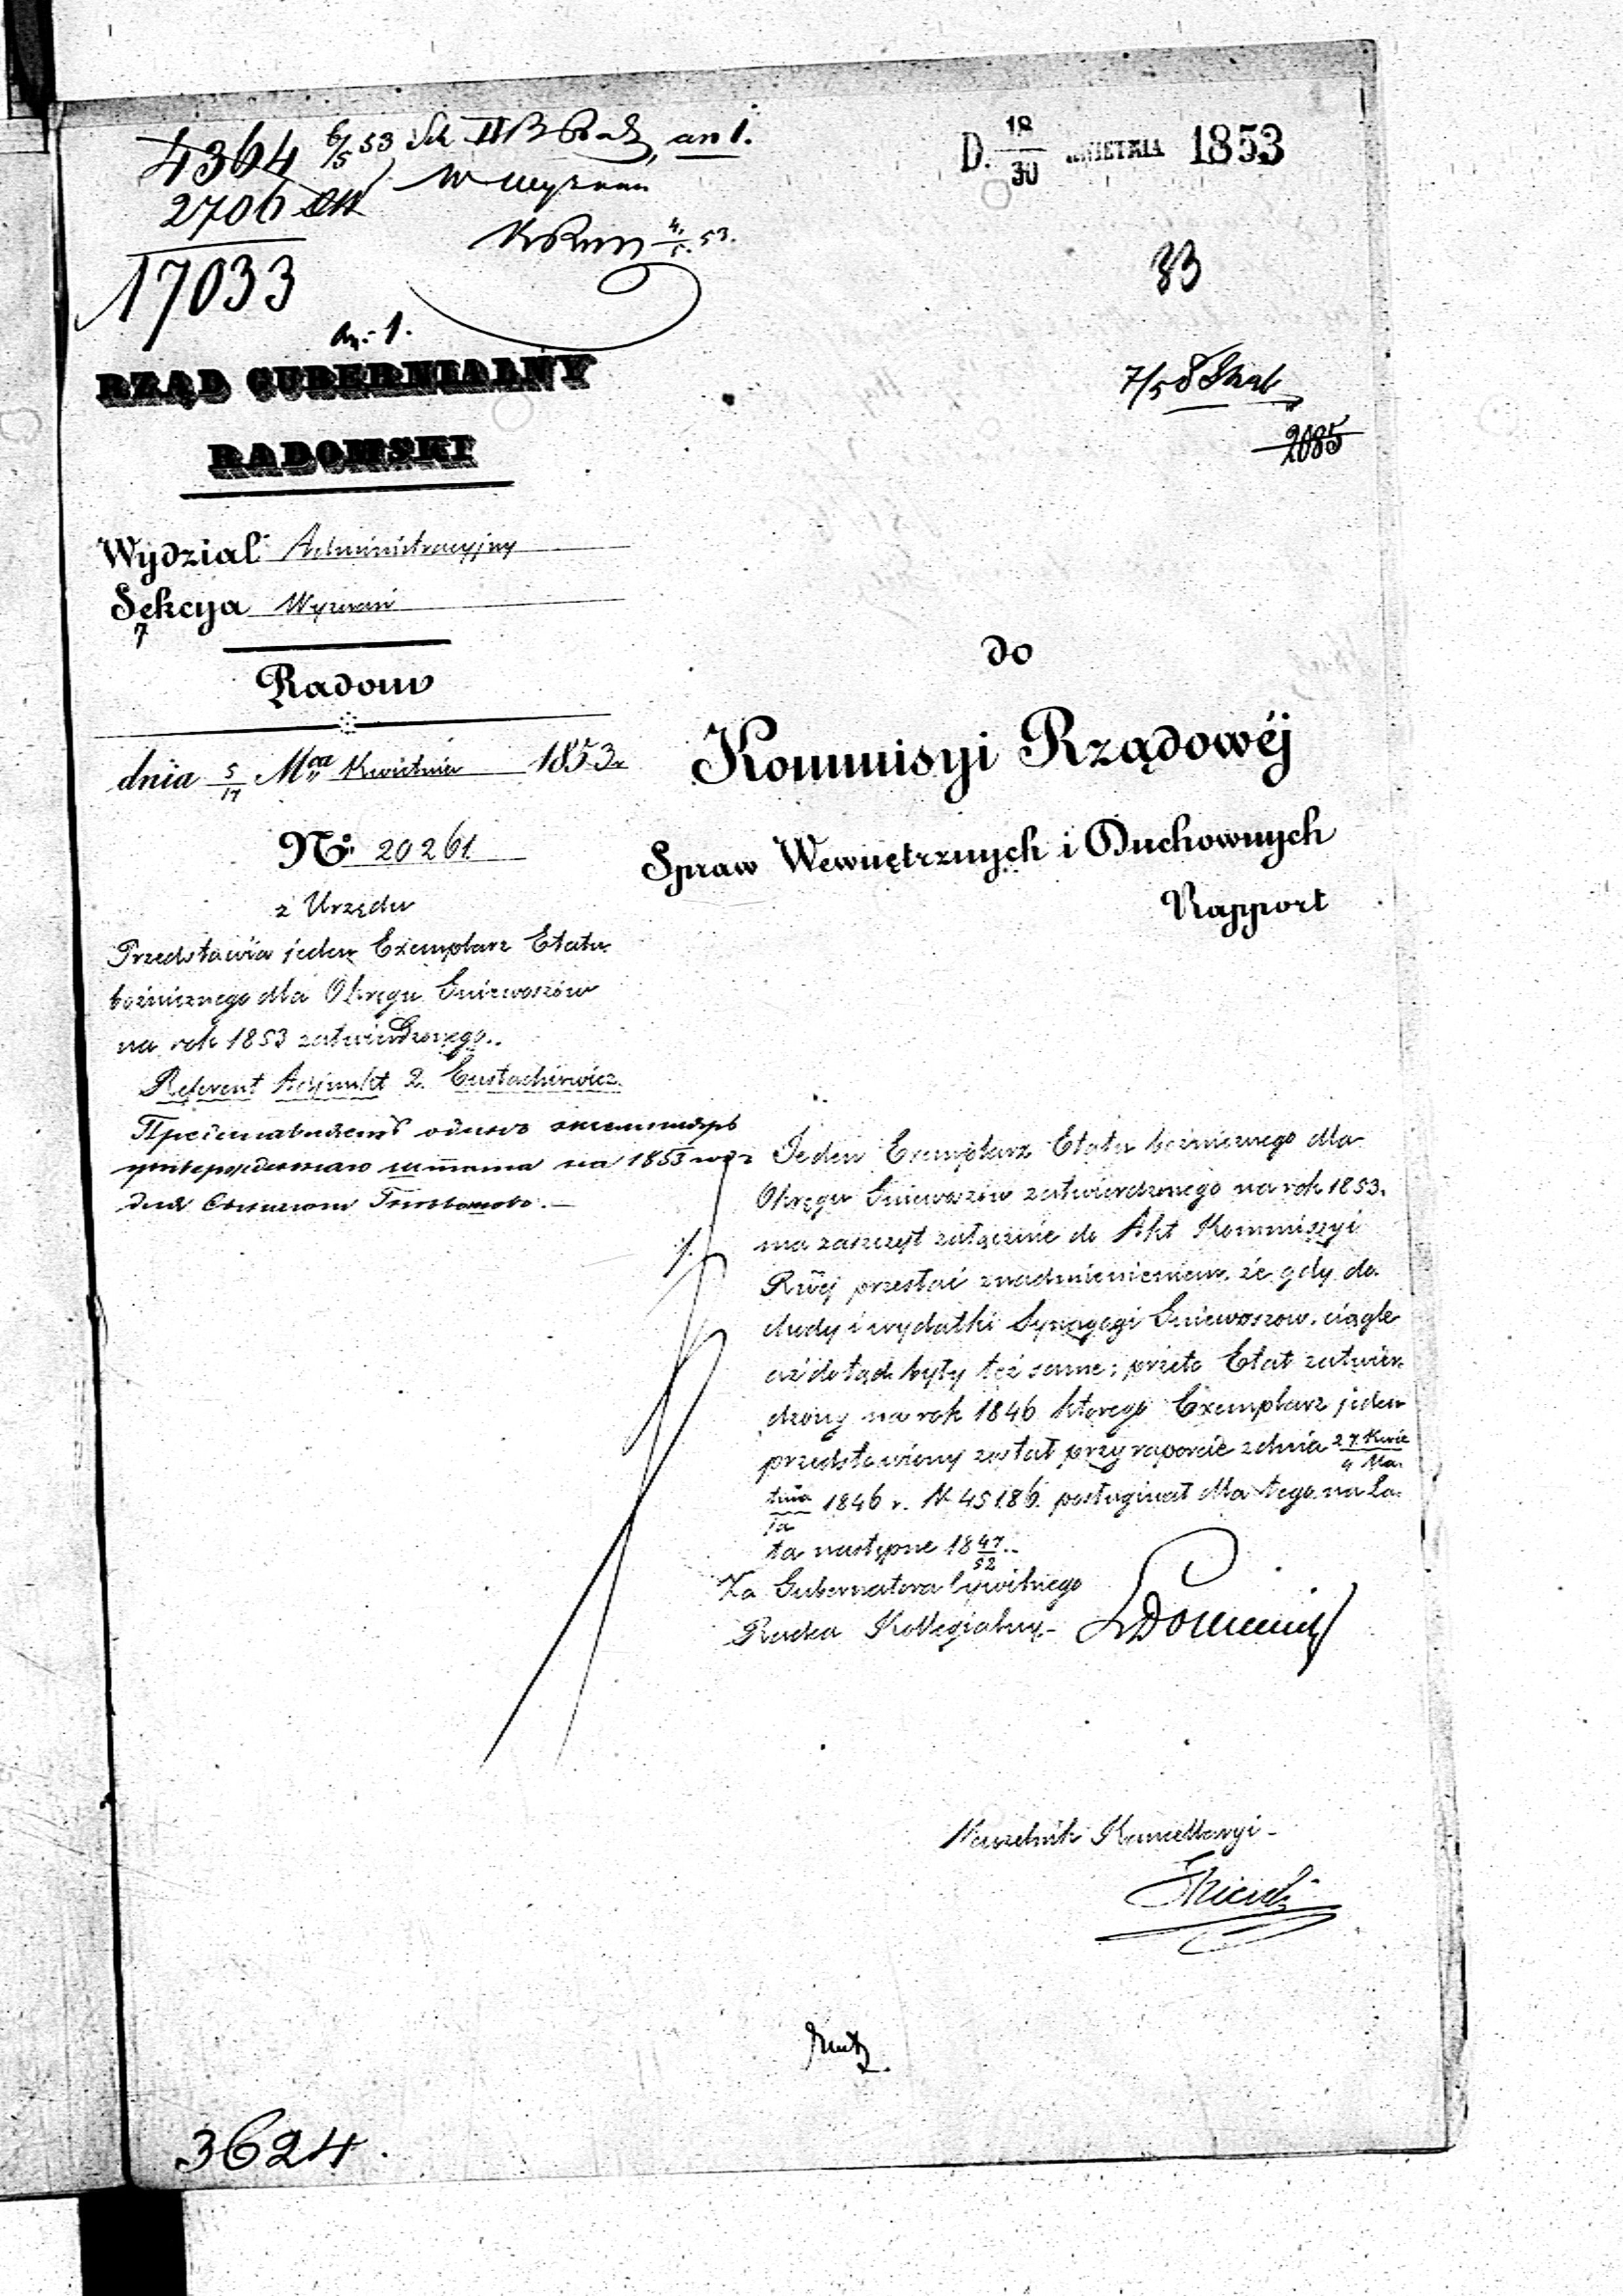 4364 6/5 53 an 1.
2706
17033
4/5. 53.
D. 18/30 KWIETNIA 1853
83
7/5 8 Skarb
2085
RZĄD GUBERNIALNY
RADOMSKI
Wydział Administracyjny
Sekcya Wyznań
7
Radom
dnia 5/17 Mca Kwietnia 1853 r.
No. 20261
z Urzędu
Przedstawia jeden Exemplarz Etatu
bożnicznego dla Okręgu Gniewoszów
na rok 1853 zatwierdzonego.
Referent Adjunkt 2. Eustachiewicz
на 1853
do
Kommisyi Rządowéj
Spraw Wewnętrznych i Duchownych
Rapport
Jeden Exemplarz Etatu bożnicznego dla
Okręgu Gniewoszów zatwierdzonego na rok 1853.
ma zaszczyt załącznie do Akt Kommissyi
Rwéj przesłać z nadmienieniem, że gdy do
chody i wydatki Synagogi Gniewoszow. ciągle
aż dotąd były też same; przeto Etat zatwier
dzony na rok 1846 którego Exemplarz jeden
przedstawiony został przy raporcie z dnia 27 Kwie/9 Ma
tnia/ja 1846 r. N 45186. posługiwał dla tego na La
ta następne 1847/52.
Za Gubernatora Cywilnego
Radca Kollegialny
Naczelnik Kancellaryi
3624